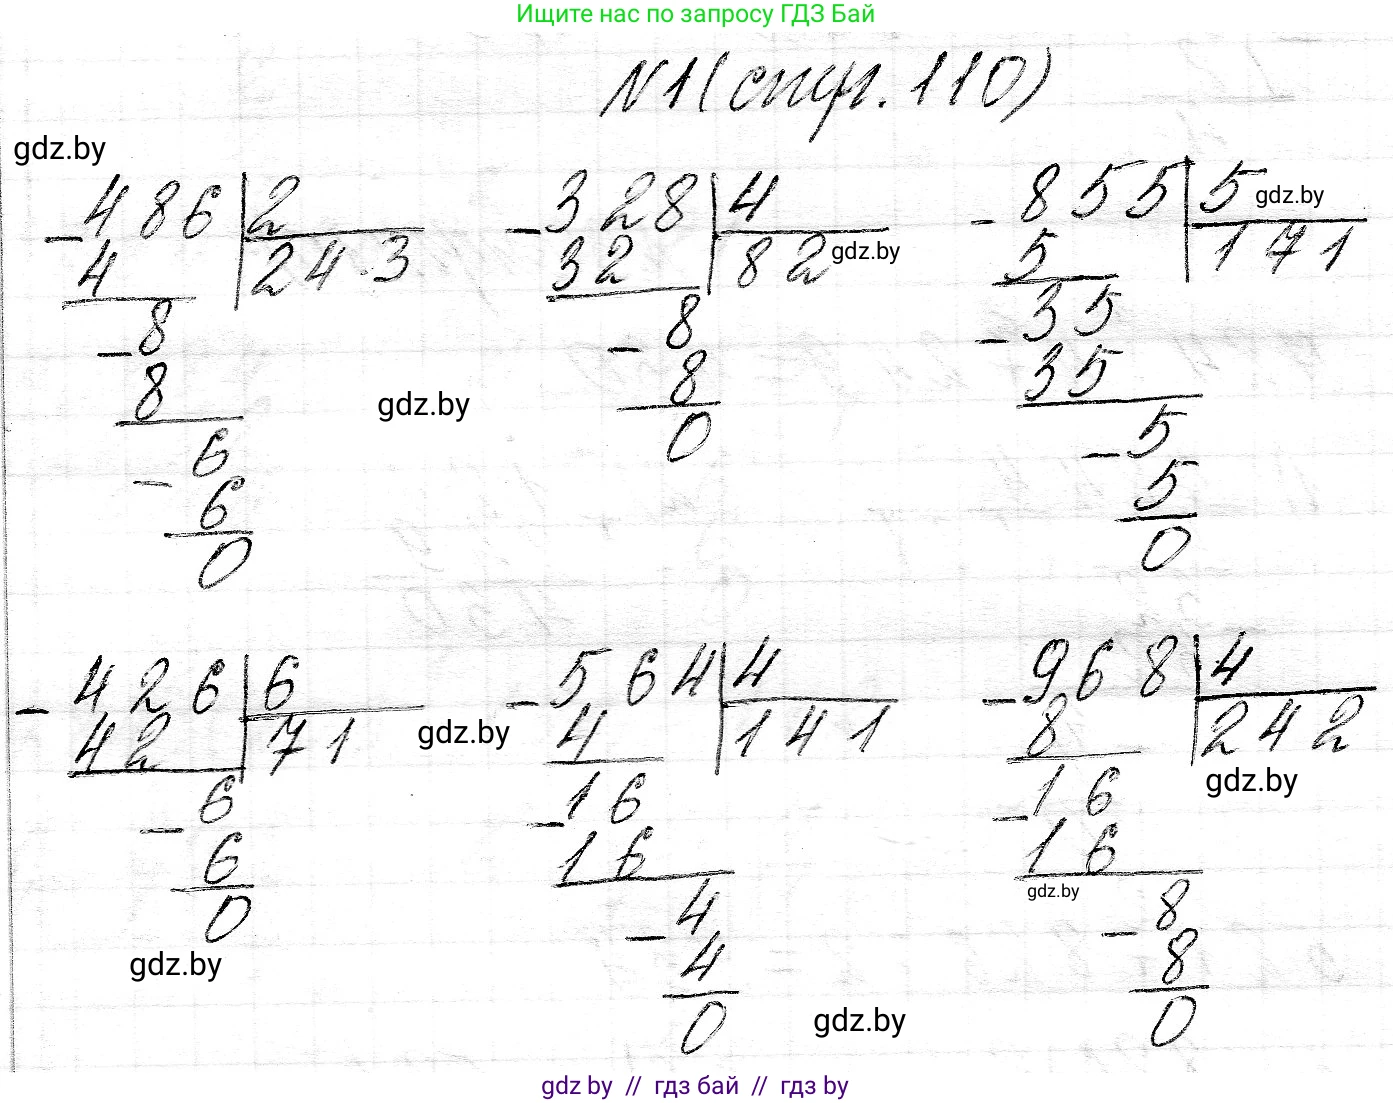 Ищите нас по запросу ГДЗ Бай
N1 (стр. 110)
gdz.by
- 486 | 2    - 328 | 4    - 855 | 5 gdz.by
4 | 243    32 | 82 gdz.by    5 | 171
- 8    - 8    - 35
8    8    35
gdz.by
- 6    0    - 5
6    5
0    0
- 426 | 6    - 564 | 4    - 968 | 4
42 | 71 gdz.by    4 | 141    8 | 242
gdz.by
- 6    - 16    - 16
6    16    16
gdz.by
0    - 4    - 8
gdz.by
4    8
0    0
gdz.by
gdz by // гдз бай // гдз by